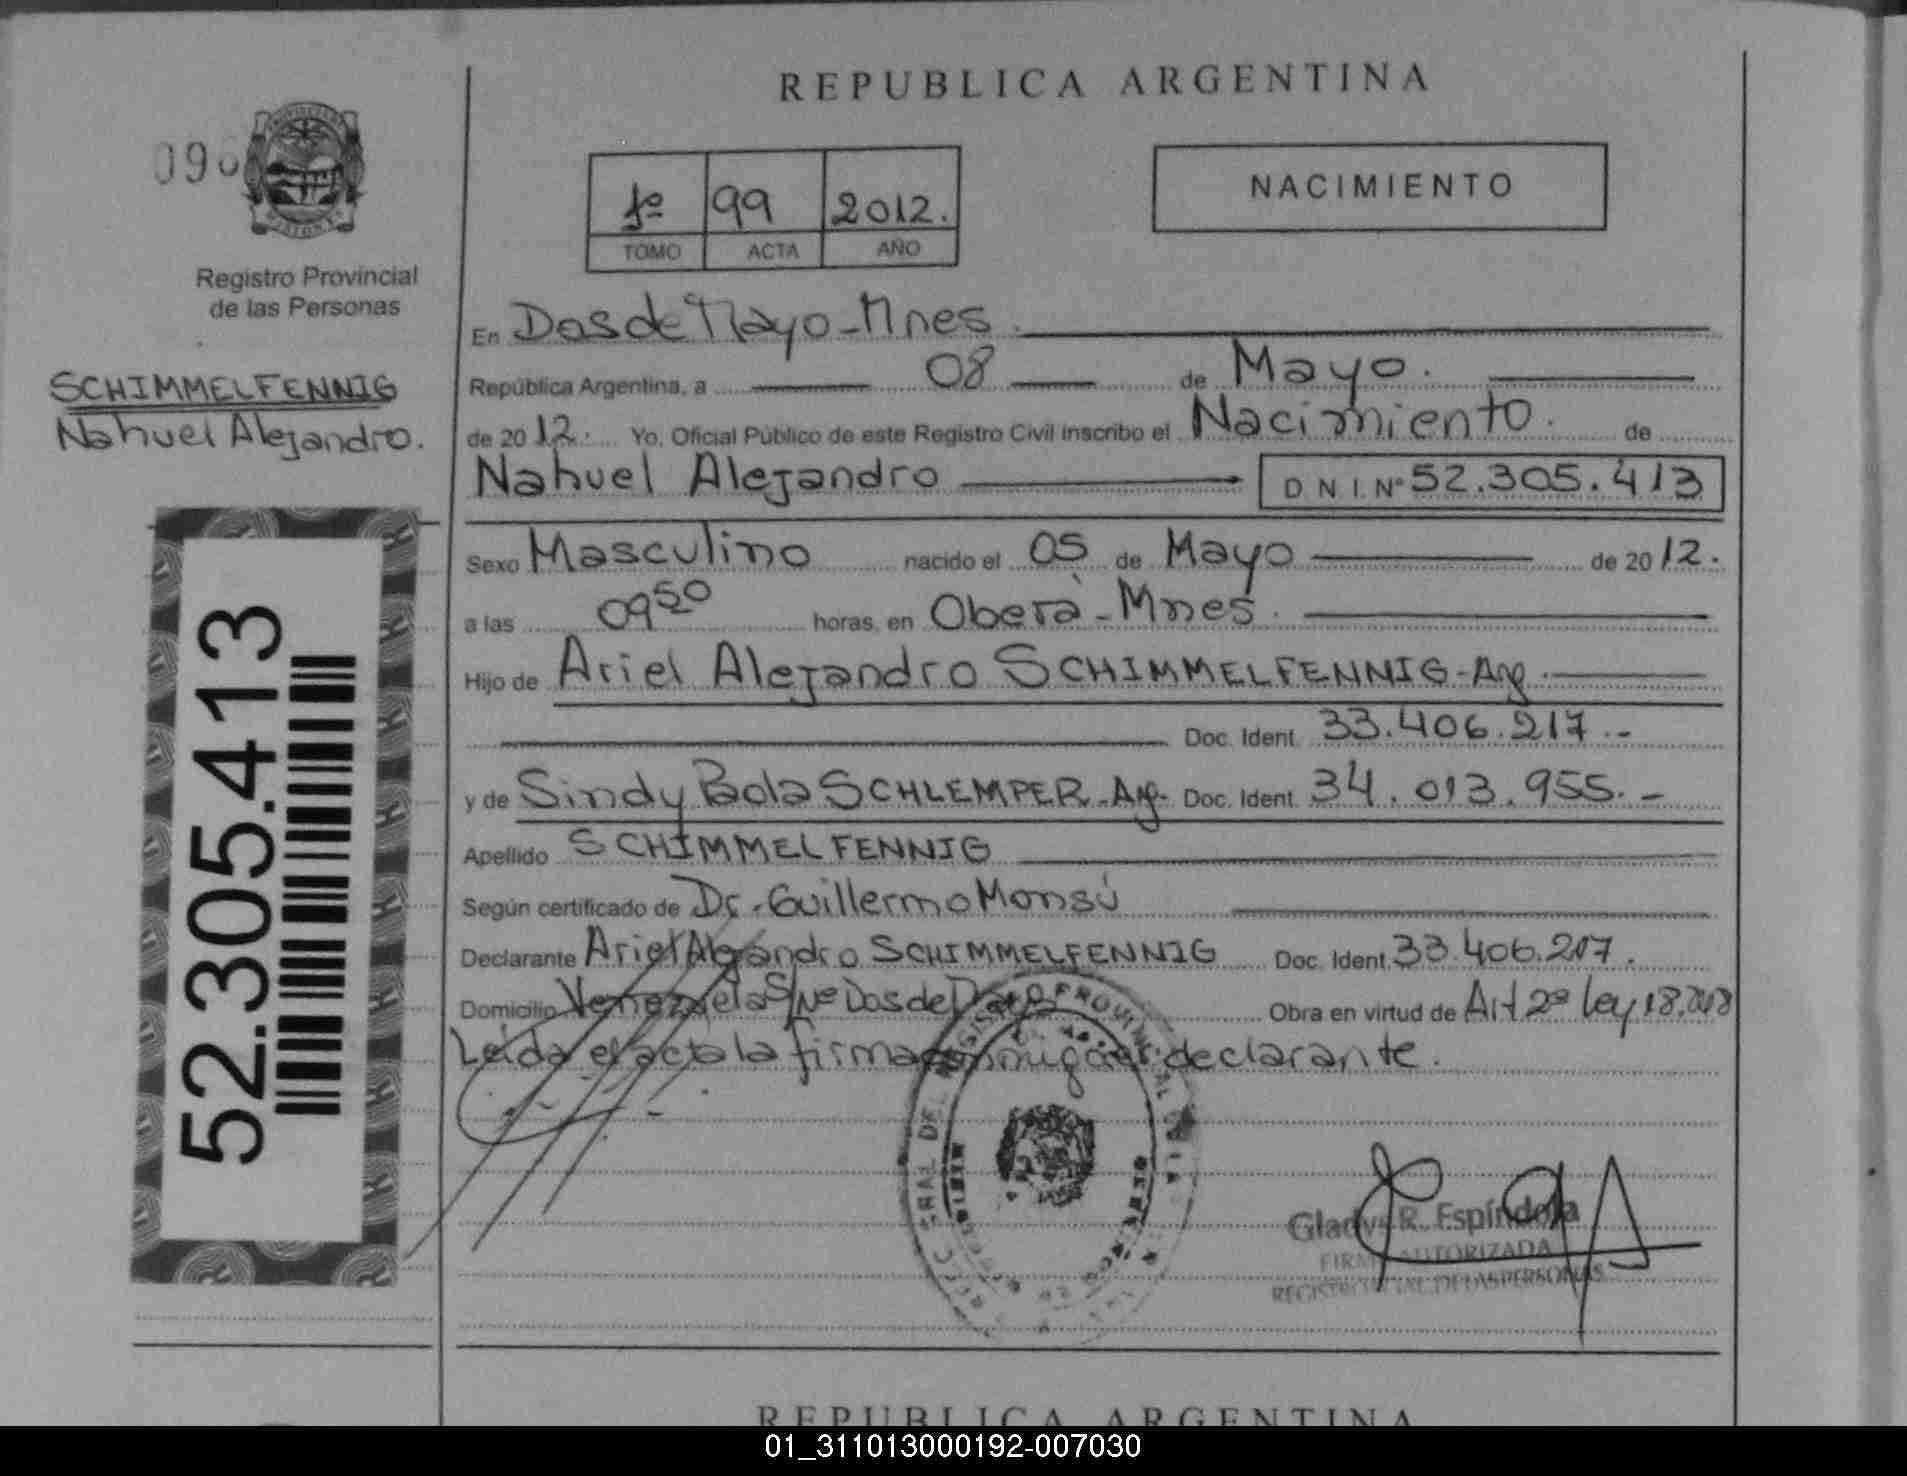 REPUBLICA ARGENTINA
09
Registro Provincial
de las Personas
1º 99 2012.
TOMO ACTA AÑO
NACIMIENTO
SCHIMMELFENNIG
Nahuel Alejandro.
52.305.413
En Dos de Mayo - Mnes.
República Argentina, a 08 de Mayo.
de 2012. Yo, Oficial Público de este Registro Civil inscribo el Nacimiento. de
Nahuel Alejandro D N. I. Nº 52.305.413
Sexo Masculino nacido el 05 de Mayo de 2012.
a las 09 50 horas, en Oberá - Mnes.
Hijo de Ariel Alejandro SCHIMMELFENNIG - Arg.
Doc. Ident. 33.406.217.-
y de Sindy Paola SCHLEMPER - Arg. Doc. Ident. 34.013.955.-
Apellido SCHIMMELFENNIG
Según certificado de Dr. Guillermo Monsú
Declarante Ariel Alejandro SCHIMMELFENNIG Doc. Ident. 33.406.217.
Domicilio Venezuela S/Nº Dos de Mayo Obra en virtud de Art 2º Ley 18.248
Leída el acta la firma conmigo el declarante.
Gladys R. Espíndola
FIRMA AUTORIZADA
REGISTRO DE LAS PERSONAS
REPUBLICA ARGENTINA
01_311013000192-007030